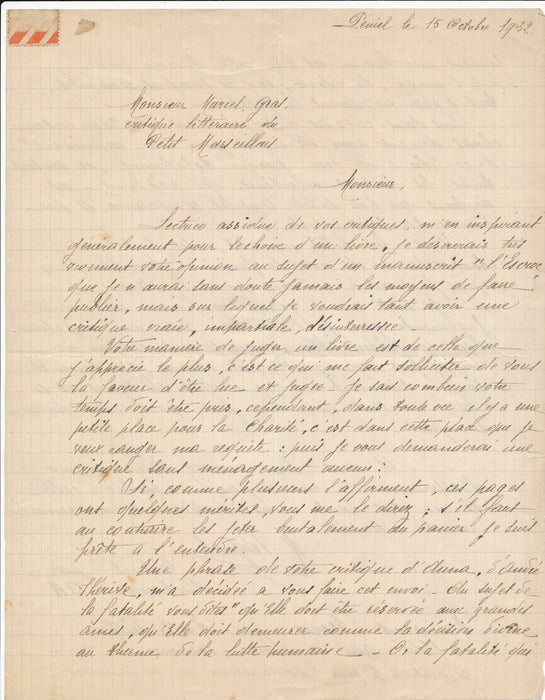 le 15 Octobre 1932.
Monsieur Marcel Gras
critique littéraire du
Petit Marseillais
Monsieur,
Lectrice assidue de vos critiques, m'en inspirant
généralement pour le choix d'un livre, je désirerais très
vivement votre opinion au sujet d'un manuscrit "l'Escroc"
que je n'aurai sans doute jamais les moyens de faire
publier, mais sur lequel je voudrais tant avoir une
critique vraie, impartiale, désintéressée.
Votre manière de juger un livre est de celle que
j'apprécie le plus, c'est ce qui me fait solliciter de vous
la faveur d'être lue et jugée. Je sais combien votre
temps doit être pris, cependant, dans toute vie il y a une
petite place pour la Charité, c'est dans cette place que je
veux ranger ma requête : puis je vous demanderai une
critique sans ménagement aucun :
Si, comme plusieurs l'affirment, ces pages
ont quelques mérites, vous me le direz ; s'il faut
au contraire les jeter brutalement au panier je suis
prête à l'entendre.
Une phrase de votre critique d'Anna, d'André
Thérive, m'a décidée a vous faire cet envoi. Au sujet de
la fatalité vous dites "qu'Elle doit être réservée aux grandes
ames, qu'Elle doit demeurer comme la décision divine
au therme de la lutte humaine — Or la fatalité qui